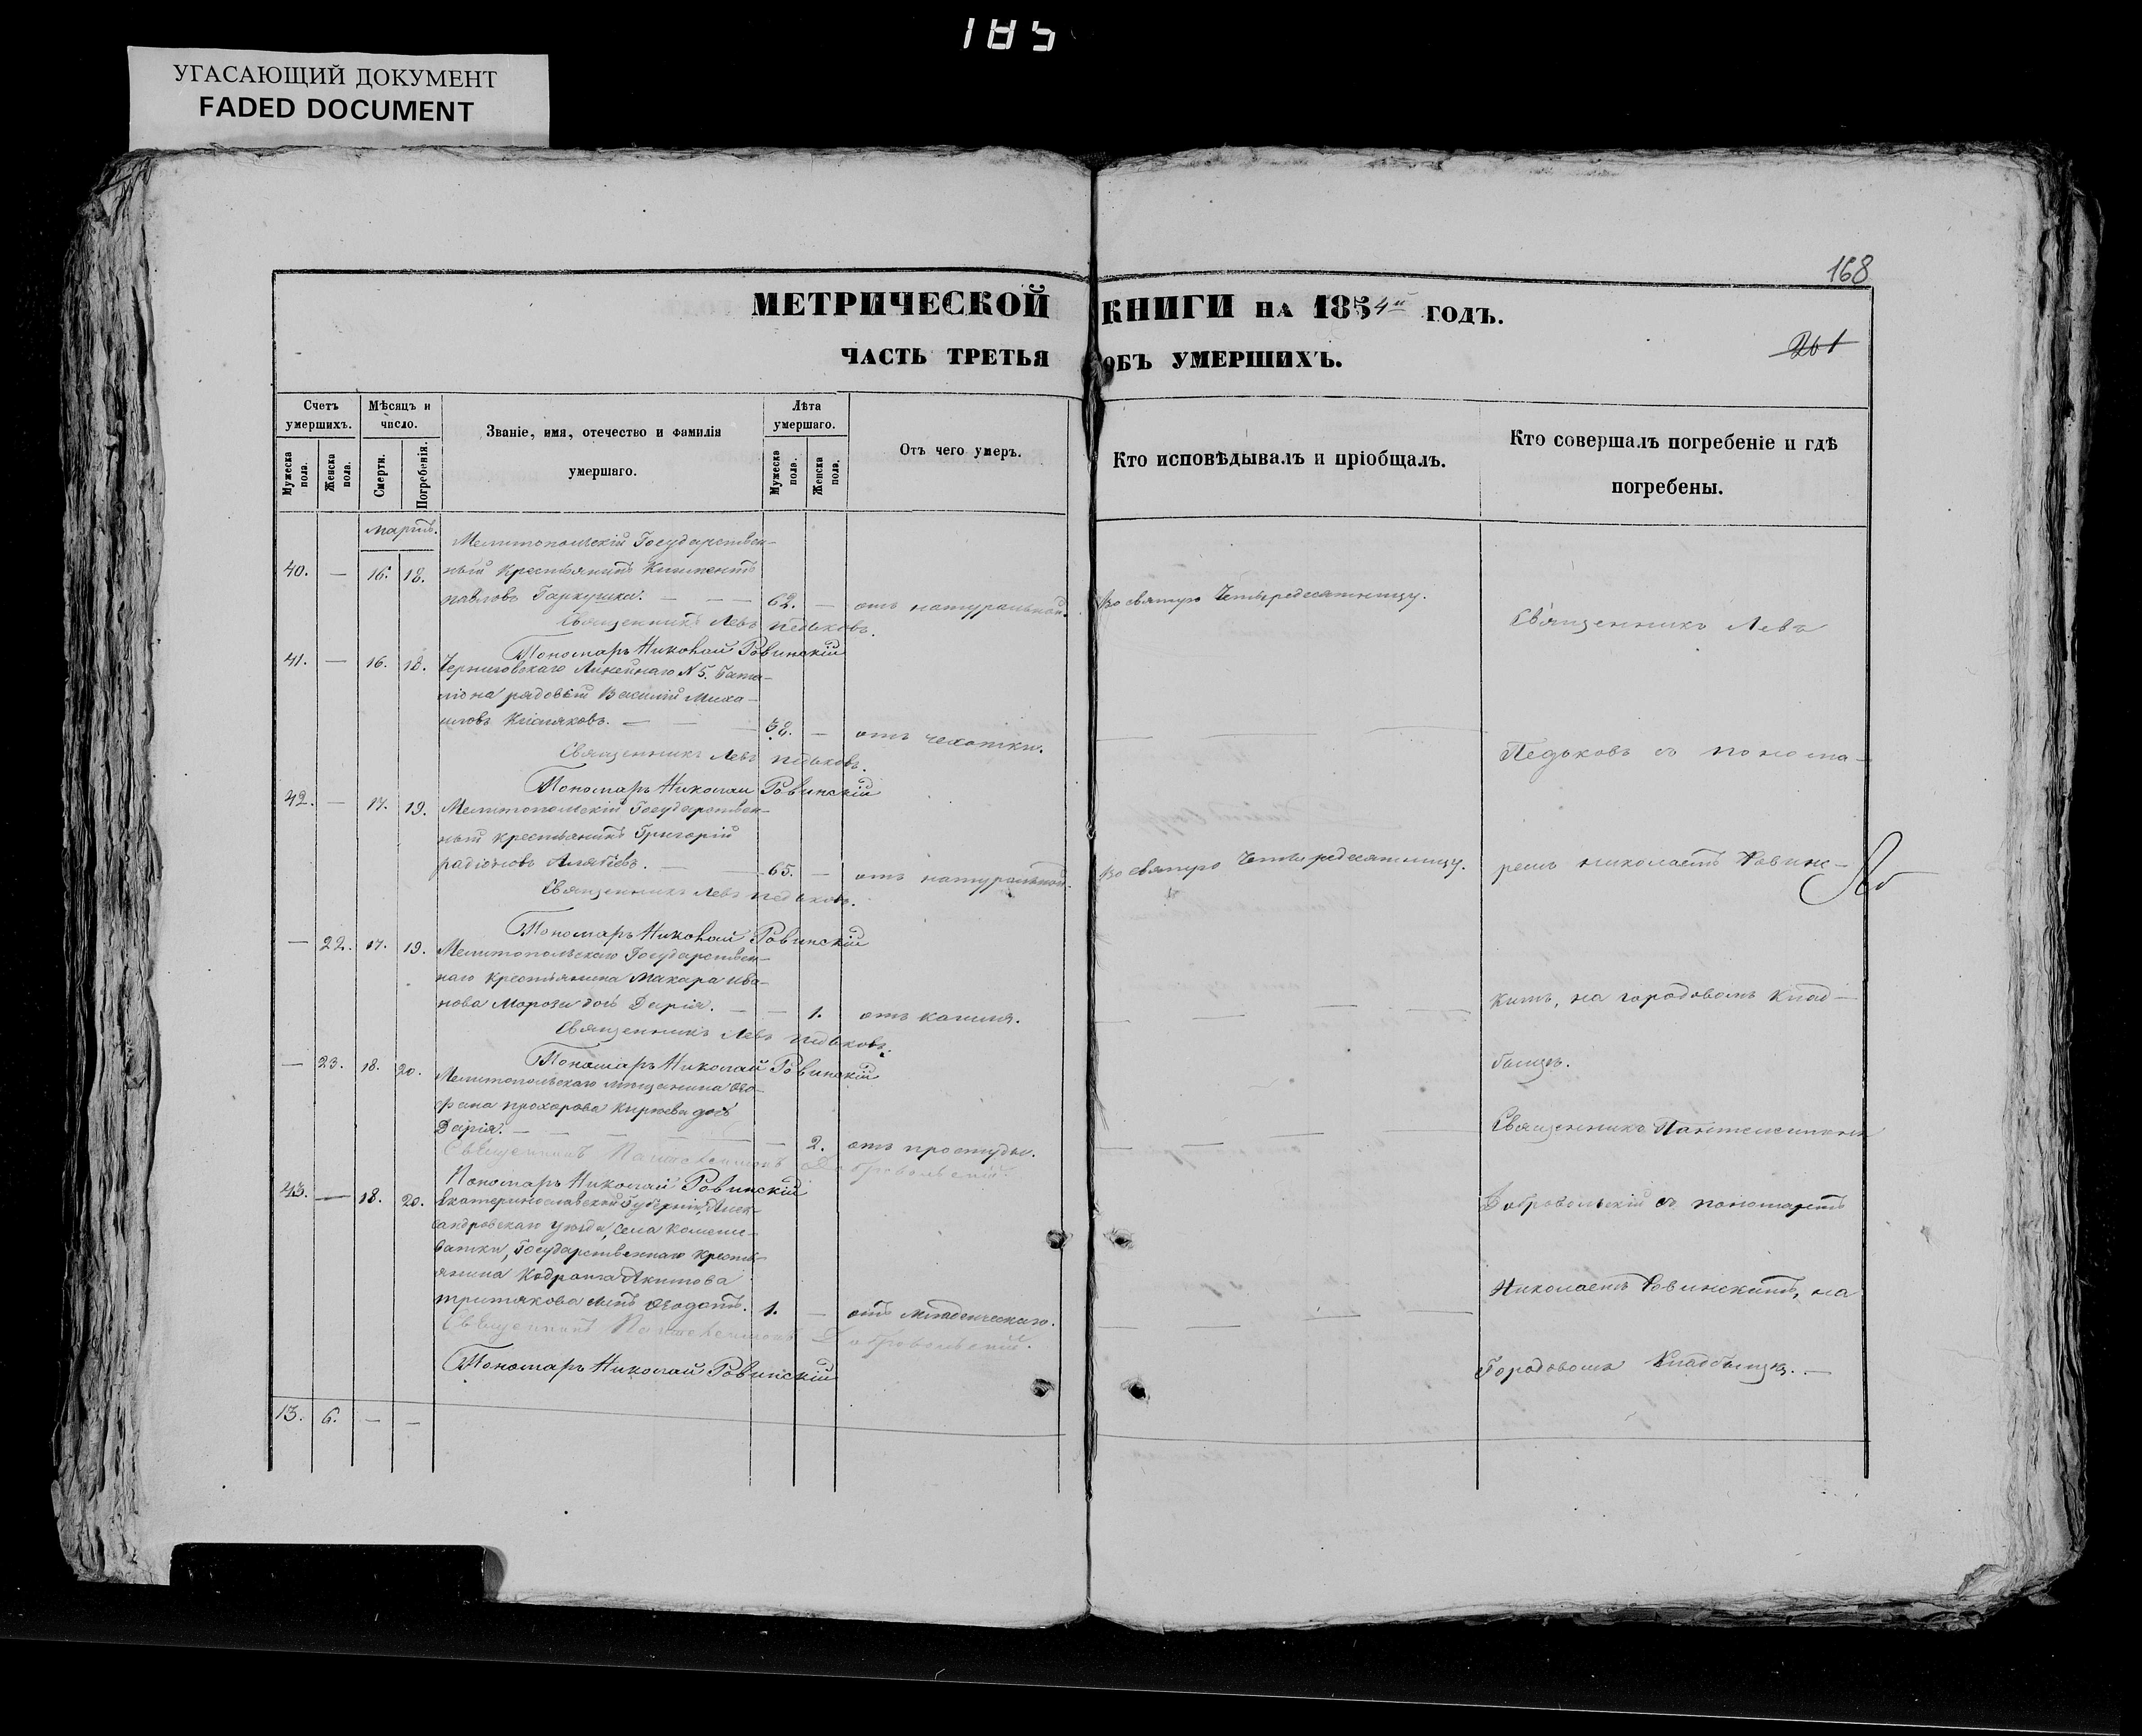 185
УГАСАЮЩИЙ ДОКУМЕНТ
FADED DOCUMENT
168
МЕТРИЧЕСКОЙ КНИГИ НА 1854й ГОДЪ.
201
ЧАСТЬ ТРЕТЬЯ ОБЪ УМЕРШИХЪ.
Счетъ умершихъ.
Мужеска пола.
Женска пола.
Мѣсяцъ и число.
Смерти.
Погребенія.
Званіе, имя, отечество и фамилія умершаго.
Лѣта умершаго.
Мужеска пола.
Женска пола.
Отъ чего умеръ.
Кто исповѣдывалъ и пріобщалъ.
Кто совершалъ погребеніе и гдѣ погребены.
Мартъ.
Мелитопольскій Государствен-
40. — 16. 18. ный крестьянинъ Климентъ
павловъ Гаркушка. — — — 62. — отъ натуральной. Во святую Четыредесятницу.
Священникъ Левъ Педьковъ.
Священникъ Левъ
Пономарь Николай Ровинскій
41. — 16. 18. Черниговскаго Линейнаго N 5. Бата-
ліона рядовый Василій Миха-
иловъ — — 38. — отъ чехотки. — — —
Священникъ Левъ Педьковъ.
Педьковъ съ понома-
Пономарь Николай Ровинскій
42. — 17. 19. Мелитопольскій Государствен-
ный крестьянинъ Григорій
радіоновъ — — 65. — отъ натуральной. Во святую Четыредесятницу.
Священникъ Левъ Педьковъ.
ремъ николаемъ Ровинс-
Пономарь Николай Ровинскій
— 22. 17. 19. Мелитопольскаго Государствен-
наго крестьянина Макара Ива-
нова Мороза дочь Дарія. — — 1. отъ кашля. — — — —
Священникъ Левъ Педьковъ.
кимъ, на городовомъ клад-
Пономарь Николай Ровинскій
бищѣ.
— 23. 18. 20. Мелитопольскаго мѣщанина
прохорова дочь
Дарія. — — — — — 2. отъ простуды. — — — —
Священникъ Пантелеимонъ Добровольскій.
Священникъ Пантелеимонъ
Пономарь Николай Ровинскій
43. — 18. 20. Екатеринославской Губерніи, Алек-
сандровскаго уѣзда, села Камыше-
ватки, Государственнаго кресть-
янина Кодрата Акимова
сынъ 1. — отъ младенческаго. — — — —
Священникъ Пантелеимонъ Добровольскій.
Добровольскій съ пономаремъ
Николаемъ Ровинскимъ, на
Пономарь Николай Ровинскій
Городовомъ Кладбищѣ. —
13. 6. — —